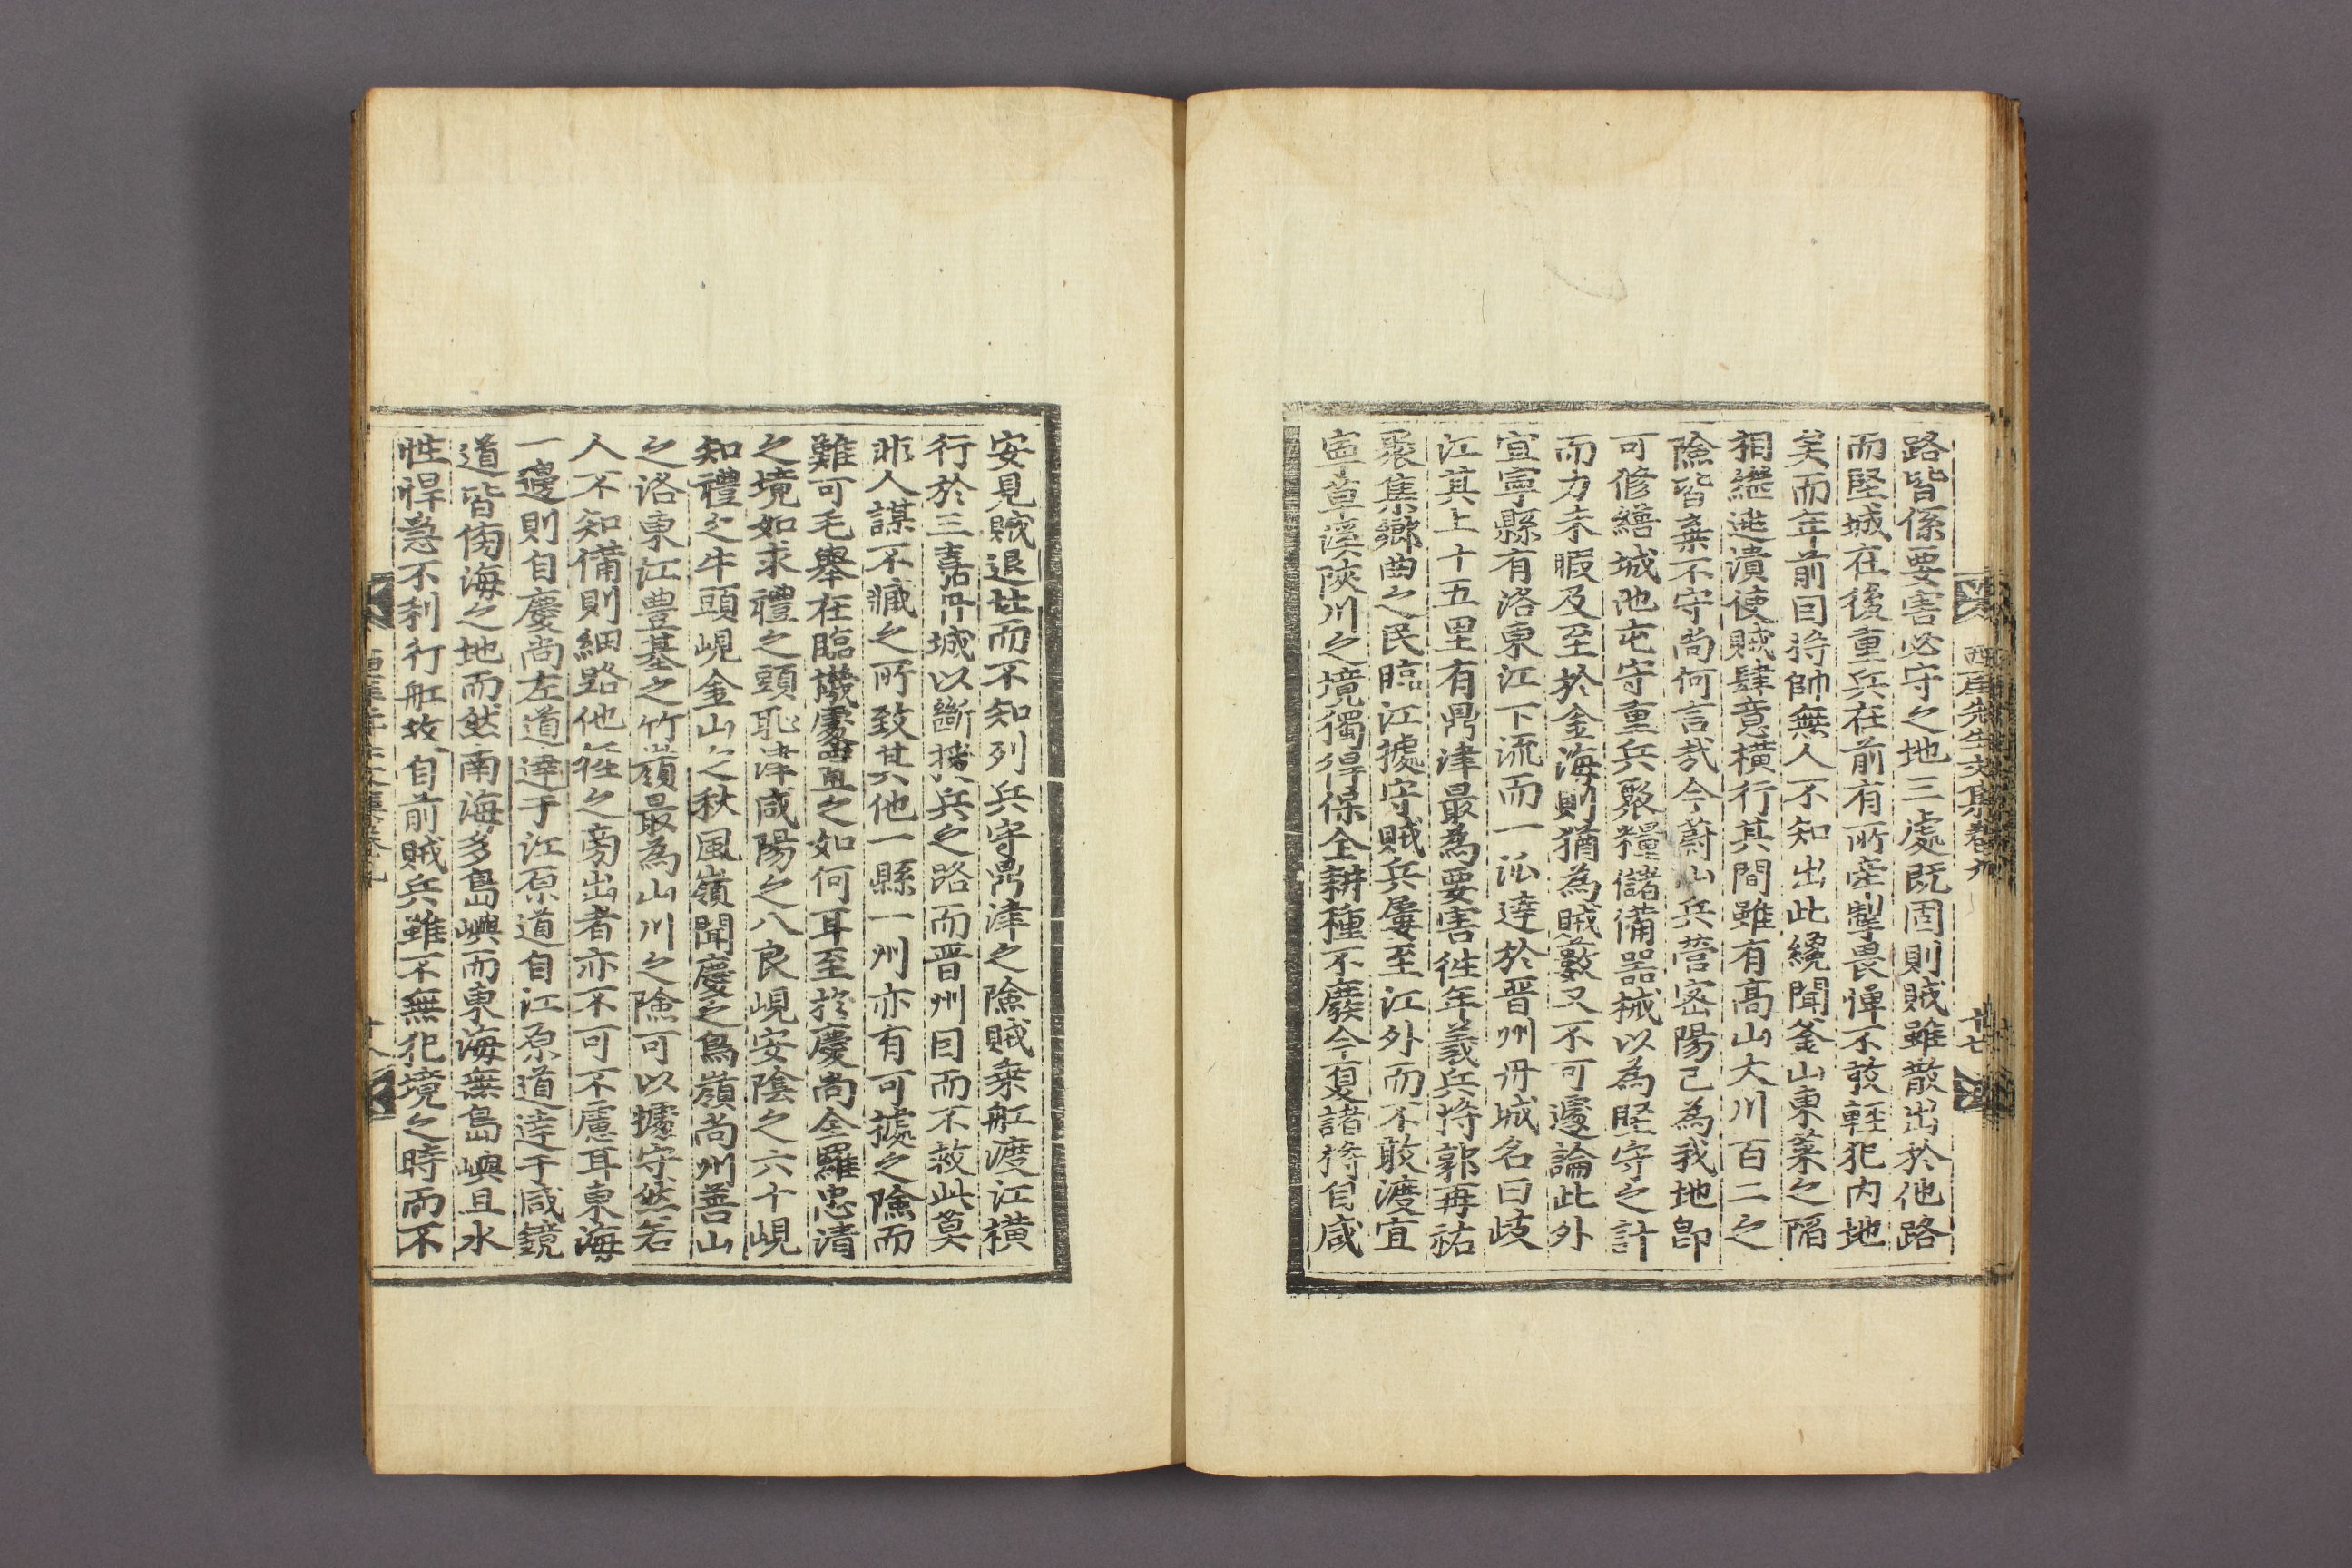 西厓先生文集卷九
十七
路皆係要害必守之地三處旣固則賊雖散出於他路
而堅城在後重兵在前有所牽掣畏憚不敢輕犯內地
矣而年前囙將帥無人不知出此纔聞釜山東萊之陷
相繼逃潰使賊肆意橫行其間雖有高山大川百二之
險皆棄不守尙何言㢤今蔚山兵營密陽已爲我地卽
可修繕城池屯守重兵聚糧儲備器械以為堅守之計
而力未暇及至於金海則猶為賊藪又不可遽論此外
宜寧縣有洛東江下流而一派達於晋州丹城名曰歧
江其上十五里有鼎津最為要害徃年義兵將郭再祐
聚集鄉曲之民臨江據守賊兵屢至江外而不敢渡宜
寧草溪陜川之境獨得保全耕種不廢今夏諸將自咸
安見賊退走而不知列兵守鼎津之險賊乘舡渡江橫
行於三嘉丹城以斷援兵之路而晋州囙而不救此莫
非人謀不臧之所致其他一縣一州亦有可據之險而
難可毛舉在臨機處置之如何耳至於慶尙全羅忠清
之境如求禮之頭恥津咸陽之八良峴安陰之六十峴
知禮之牛頭峴金山之秋風嶺聞慶之鳥嶺尙州善山
之洛東江豊基之竹嶺最為山川之險可以據守然若
人不知備則細路他徑之旁出者亦不可不慮耳東海
一邊則自慶尙左道達于江原道自江原道達于咸鏡
道皆傍海之地而然南海多島嶼而東海無島嶼且水
性悍急不利行舡故自前賊兵雖不無犯境之時而不
十八